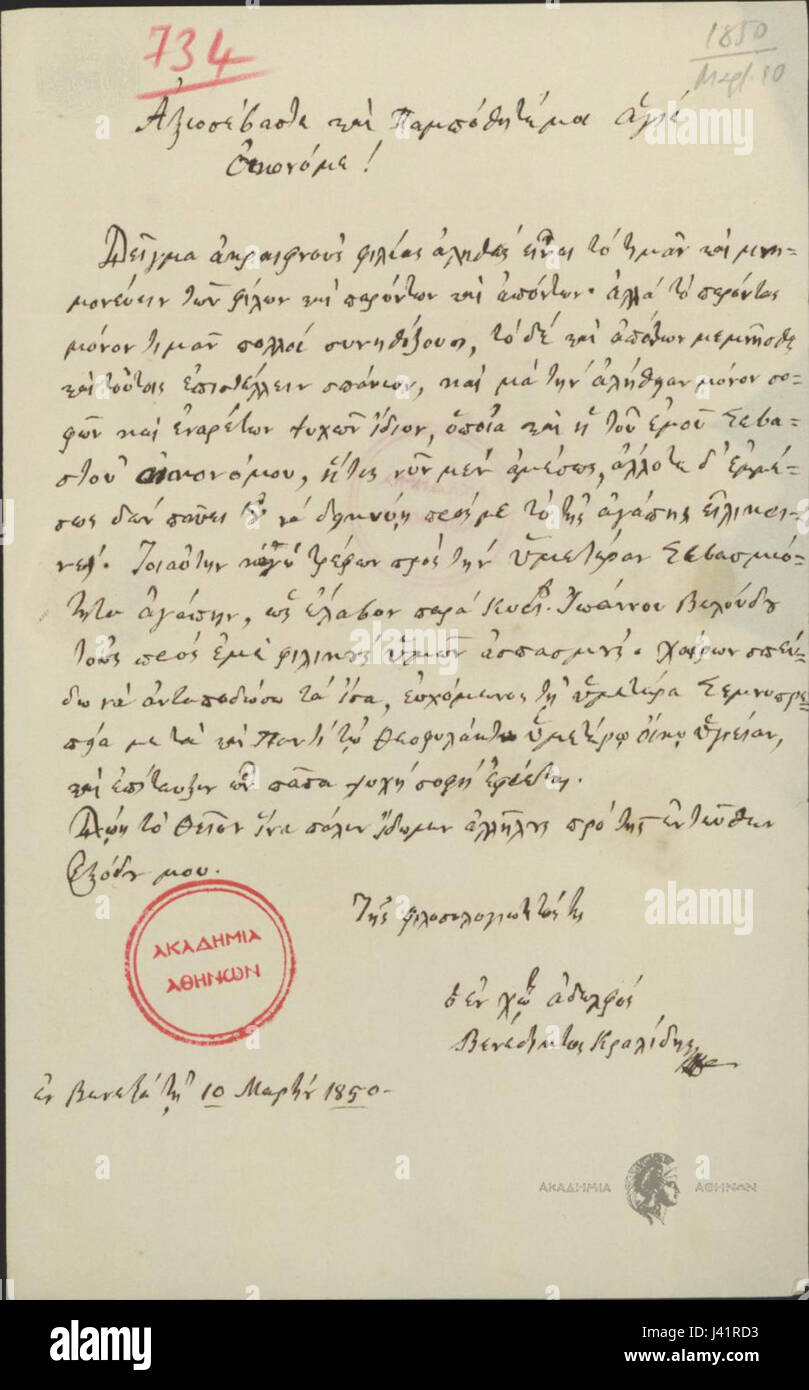 734
1850
Μαρτ. 10
Ἀξιοσέβαστε καὶ Παμπόθητέ μοι ἅγιε
Οἰκονόμε!
Δεῖγμα ἀκραιφνοῦς φιλίας ἀληθῶς εἶναι τὸ τιμᾶν καὶ μνη-
μονεύειν τῶν φίλων καὶ παρόντων καὶ ἀπόντων· ἀλλὰ τὸ παρόντας
μόνον τιμᾶν πολλοὶ συνηθίζουσι, τὸ δὲ καὶ ἀπόντων μεμνῆσθαι
καὶ τούτοις ἐπιστέλλειν σπάνιον, καὶ μὰ τὴν ἀλήθειαν μόνον σο-
φῶν καὶ ἐναρέτων ψυχῶν ἴδιον, ὁποία καὶ ἡ τοῦ ἐμοῦ Σεβα-
στοῦ οἰκονόμου, ἥτις νῦν μὲν ἀμέσως, ἄλλοτε δ' ἐμμέ-
σως δὲν παύει νὰ δεικνύῃ πρός με τὸ τῆς ἀγάπης εἰλικρι-
νές. Τοιαύτην κᾀγὼ τρέφων πρὸς τὴν ὑμετέραν Σεβασμιό-
τητα ἀγάπην, ὡς ἔλαβον παρὰ Κυρ. Ἰωάννου Βελούδου
τοὺς πρὸς ἐμὲ φιλικοὺς ὑμῶν ἀσπασμούς. χαίρων σπεύ-
δω νὰ ἀνταποδώσω τὰ ἴσα, εὐχόμενος τῇ ὑμετέρᾳ Σεμνοπρε-
πείᾳ μετὰ καὶ Παντὶ τῷ Θεοφυλάκτῳ ὑμετέρῳ οἴκῳ ὑγιείαν,
καὶ ἐπίτευξιν ὧν πᾶσα ψυχὴ σοφὴ ἐφίεται.
Δῴη τὸ Θεῖον ἵνα πάλιν ἴδωμεν ἀλλήλους πρὸ τῆς ἐντεῦθεν
ἐξόδου μου.
Τῆς φιλοσολογιωτητός της
ὁ ἐν χῷ ἀδελφός
Βενέδικτος Κραλίδης
ἐν Βενετίᾳ τῇ 10 Μαρτίου 1850-
ΑΚΑΔΗΜΙΑ
ΑΘΗΝΩΝ
ΑΚΑΔΗΜΙΑ ΑΘΗΝΩΝ
alamy stock photo
alamy
Image ID: J41RD3
www.alamy.com